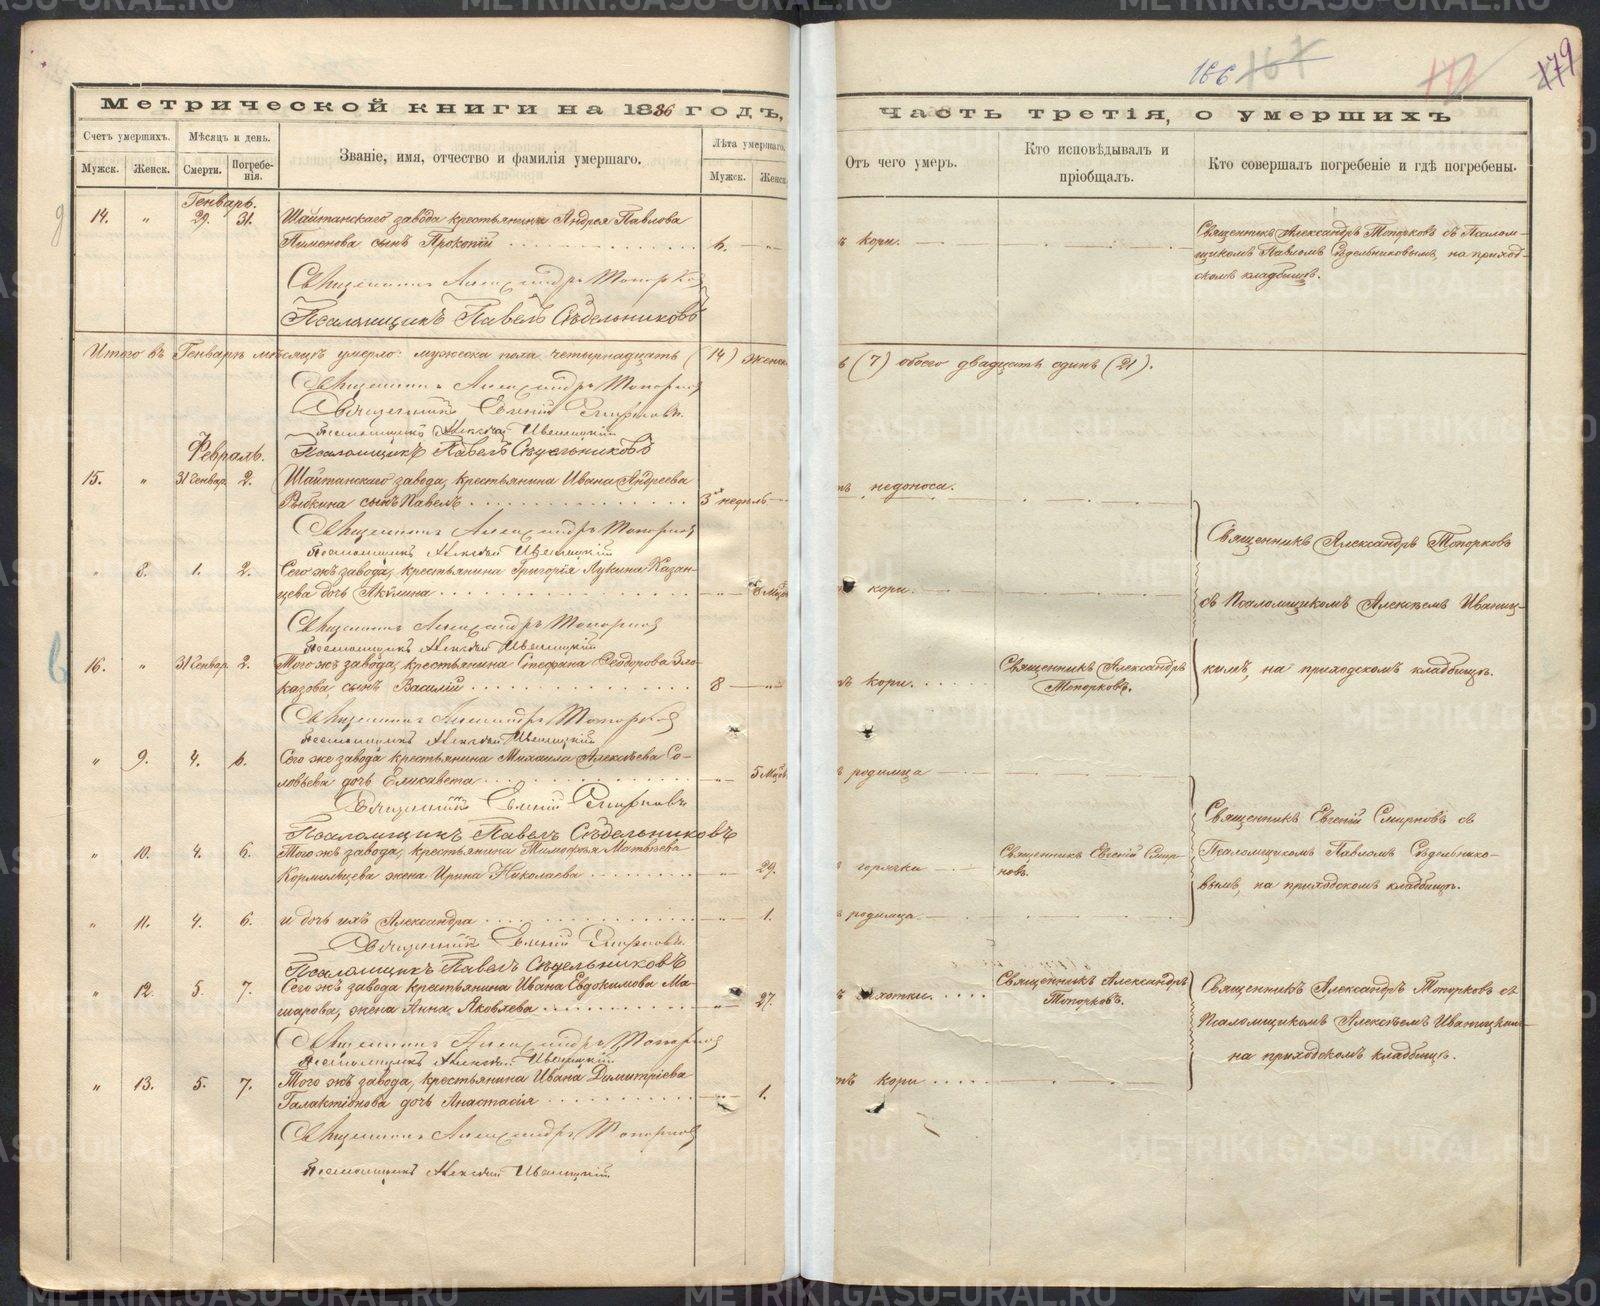 166 167 112 179
Метрической книги на 1886 годъ,
Часть третія, о умершихъ
Счетъ умершихъ.
Мѣсяцъ и день.
Званіе, имя, отчество и фамилія умершаго.
Лѣта умершаго.
Мужск.
Женск.
Смерти.
Погребе-
нія.
Мужск.
Женск.
Отъ чего умеръ.
Кто исповѣдывалъ и
пріобщалъ.
Кто совершалъ погребеніе и гдѣ погребены.
Генварь.
14. " 29. 31. Шайтанскаго завода крестьянина Андрея Павлова
Пименова сынъ Прокопій 6. "
кори.
Священникъ Александръ Топорковъ съ Псалом-
щикомъ Павломъ Сѣдельниковымъ, на приход-
скомъ кладбищѣ.
Священникъ Александръ Топорков
Псаломщикъ Павелъ Сѣдельниковъ
Итого въ Генварѣ мѣсяцѣ умерло: мужеска пола четырнадцать (14) женск
(7) обоего двадцать одинъ (21).
Священникъ Александръ Топорков
Священникъ Евгеній Смирновъ.
Псаломщикъ Алексѣй Иваницкій
Псаломщикъ Павелъ Сѣдельниковъ
Февраль.
15. " 31 Генвар. 2. Шайтанскаго завода, крестьянина Ивана Андреева
Рыбкина сынъ Павелъ 3х недѣль
недоноса.
Священникъ Александръ Топорков
Псаломщикъ Алексѣй Иваницкій
" 8. 1. 2. Сего жъ завода, крестьянина Григорія Лукина Казан-
цева дочь Акилина " 6 Мѣс
кори.
Священникъ Александръ Топорков
Псаломщикъ Алексѣй Иваницкій
16. " 31 Генвар. 2. Того жъ завода, крестьянина Стефана Ѳеодорова Зло-
казова сынъ Василій 8 "
кори.
Священникъ Александръ
Топорковъ.
Священникъ Александръ Топорковъ
съ Псаломщикомъ Алексѣемъ Иваниц-
кимъ, на приходскомъ кладбищѣ.
Священникъ Александръ Топорков
Псаломщикъ Алексѣй Иваницкій
" 9. 4. 6. Сего же завода крестьянина Михаила Алексѣева Со-
ловьева дочь Елисавета " 5 Мѣс
родимца
Священникъ Евгеній Смирновъ
Псаломщикъ Павелъ Сѣдельниковъ
" 10. 4. 6. Того жъ завода, крестьянина Тимофея Матвѣева
Кормильцева жена Ирина Николаева " 29.
горячки
Священникъ Евгеній Смир-
новъ.
Священникъ Евгеній Смирновъ съ
Псаломщикомъ Павломъ Сѣдельнико-
вымъ, на приходскомъ кладбищѣ.
" 11. 4. 6. и дочь ихъ Александра " 1.
родимца.
Священникъ Евгеній Смирновъ.
Псаломщикъ Павелъ Сѣдельниковъ
" 12. 5. 7. Сего жъ завода крестьянина Ивана Евдокимова Ма-
шарова, жена Анна Яковлева " 27.
чахотки.
Священникъ Александръ
Топорковъ.
Священникъ Александръ Топорковъ съ
Псаломщикомъ Алексѣемъ Иваницким
на приходскомъ кладбищѣ.
Священникъ Александръ Топорков
Псаломщикъ Алексѣй Иваницкій
" 13. 5. 7. Того жъ завода, крестьянина Ивана Димитріева
Галактіонова дочь Анастасія " 1.
кори
Священникъ Александръ Топорков
Псаломщикъ Алексѣй Иваницкій
METRIKI.GASO-URAL.RU